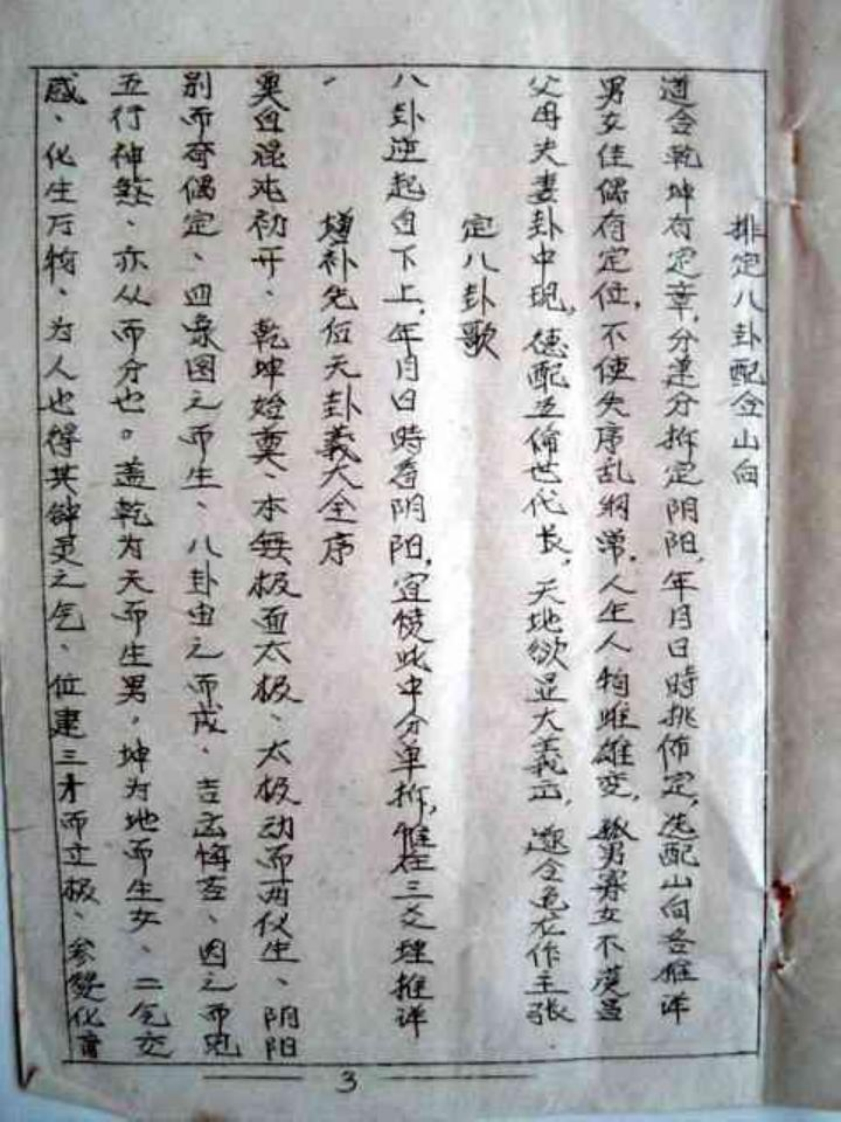 排定八卦配合山向
道合乾坤有定章,分連分拆定阴阳,年月日時排佈定,先配山向各推详
男女佳偶有定位,不使失序乱纲常,人生人物雌雄变,孤男寡女不漫
父母夫妻卦中现,德配五倫世代长,天地欲显大義正,作主张
定八卦歌
八卦逆起自下上,年月日時看阴阳,宜使此中分单拆,惟在三爻埋推详
增补先位天卦義大全序
奥自混沌初开、乾坤始奠、本無极而太极、太极动而两仪生、阴阳
别而奇偶定、四象因之而生、八卦由之而成、吉凶悔吝、因之而
五行神煞、亦从而分也。盖乾为天而生男,坤为地而生女、二气交
感、化生万物、为人也得其钟灵之气、位建三才而立极、参变化育
3